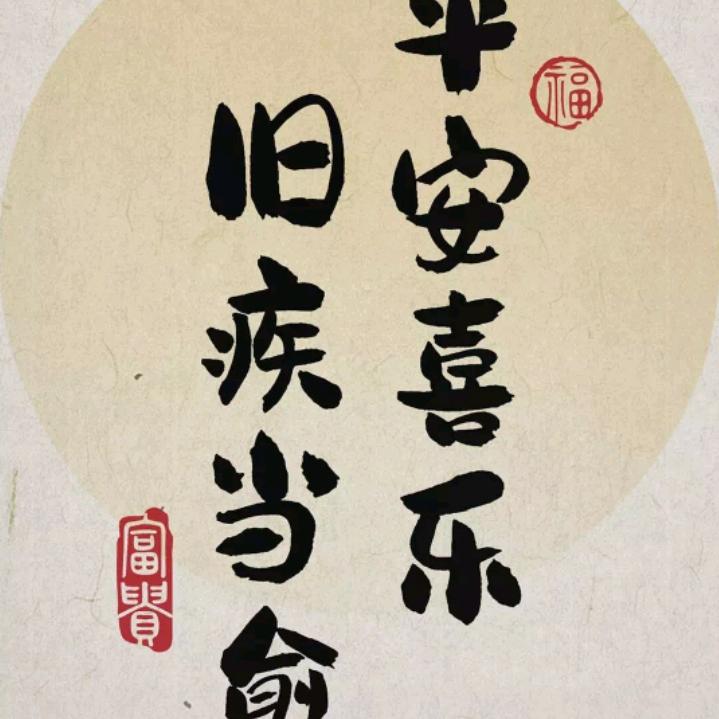 平安喜乐
旧疾当愈
福
富贵